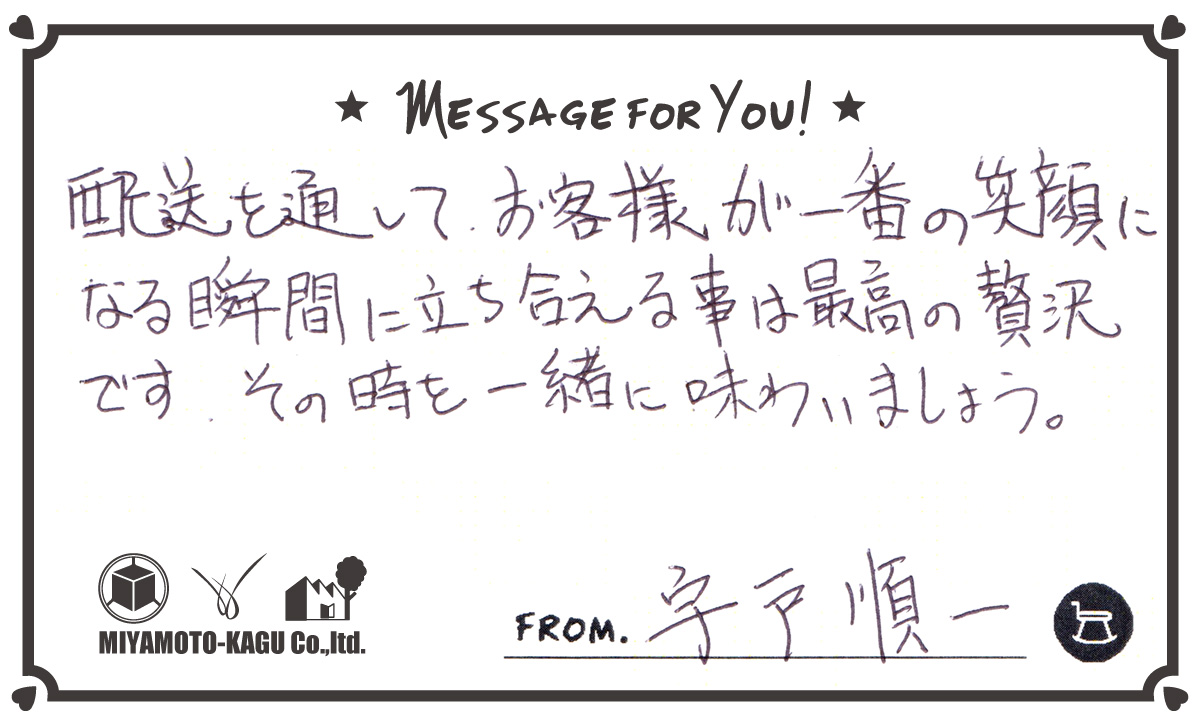 ★ MESSAGE FOR YOU! ★
配送を通して、お客様が一番の笑顔に
なる瞬間に立ち合える事は最高の贅沢
です。その時を一緒に味わいましょう。
MIYAMOTO-KAGU Co.,ltd.
FROM. 宇戸 順一